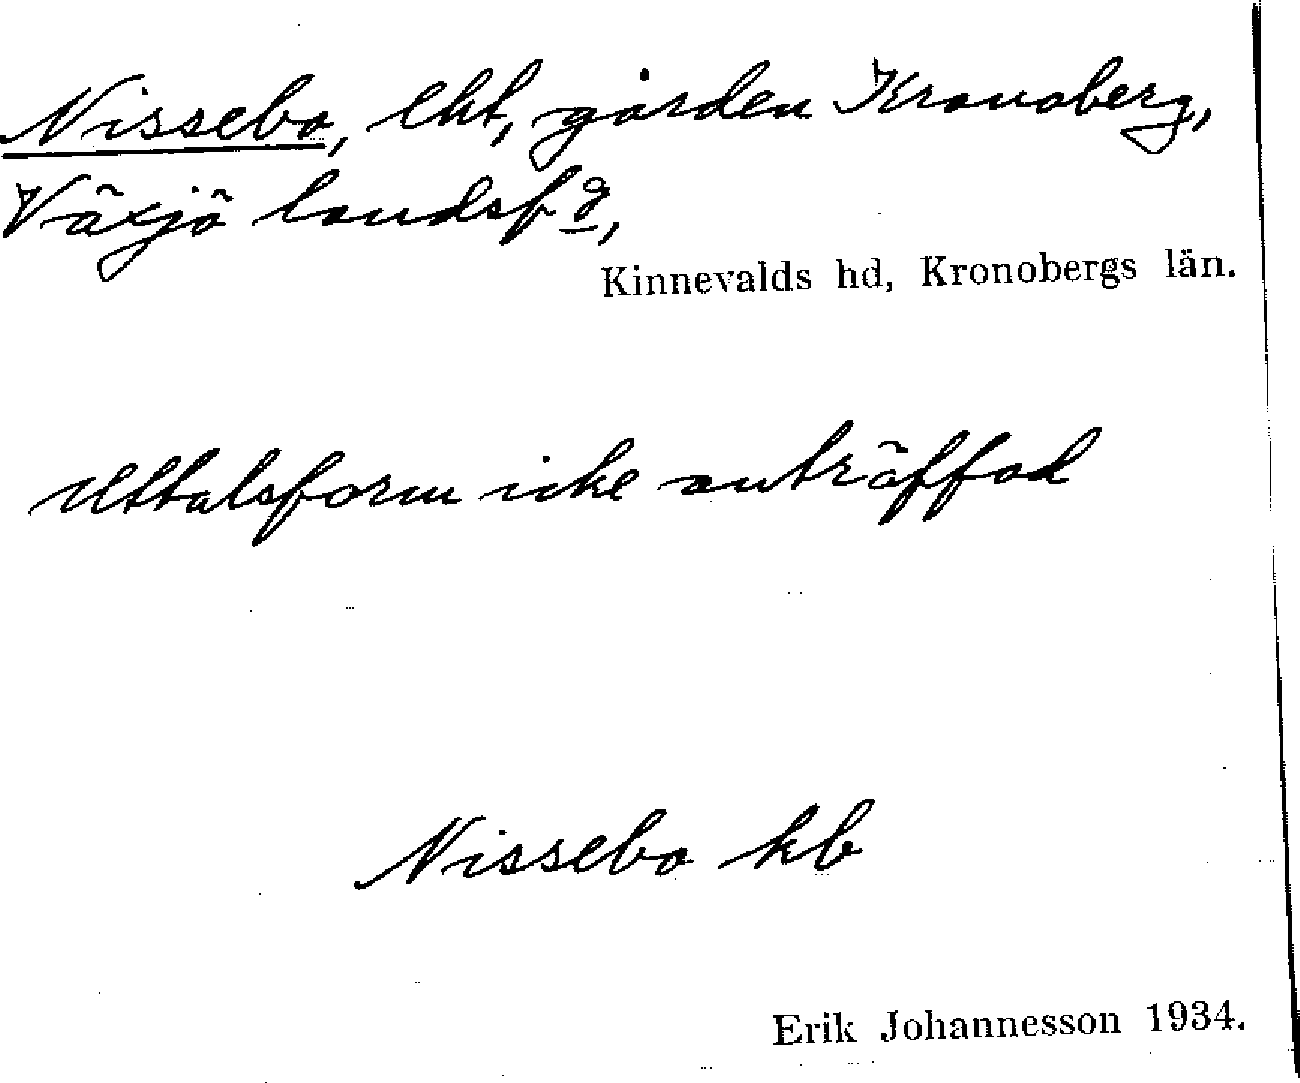 Nissebo, lht, gården Kronoberg,
Växjö landsf d,
Kinnevalds hd, Kronobergs län.
Uttalsform icke anträffad
Nissebo kb
Erik Johannesson 1934.